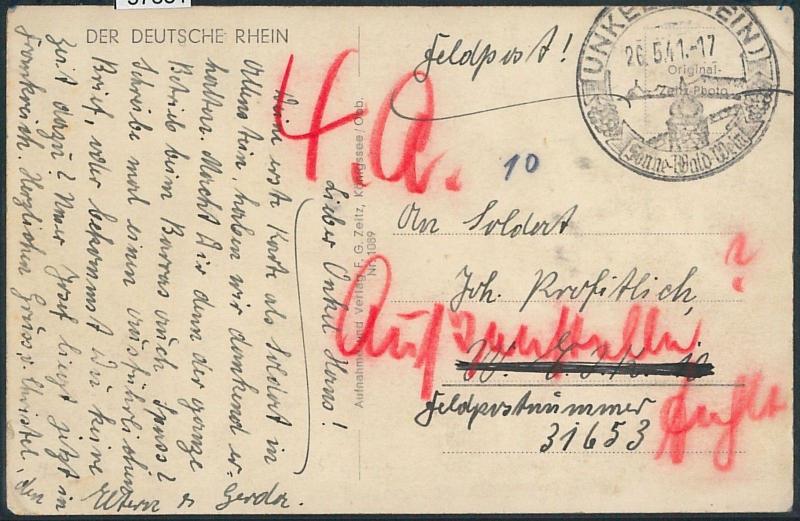 DER DEUTSCHE RHEIN
Lieber Onkel Hans!
Deine erste Karte als Soldat in
Allenstein, haben wir dankend er-
halten. Macht Dir denn der ganze
Betrieb beim Barras auch Spass?
Schreibe mal einen ausführlichen
Brief, oder bekommst Du keine
Zeit dazu? Unser Josef liegt jetzt in
Frankreich. Herzlichen Gruss v. Christel, den
Eltern u. Gerda.
Aufnahme und Verlag F. G. Zeitz, Königssee/Obb.
Nr. 1089
Feldpost!
UNKEL (RHEIN)
26.5.41.-17
Sonne-Wald-Wein
Original-
Zeitz-Photo
4.A.
10
An Soldat
Joh. Profitlich,
?
Auf
Feldpostnummer
31653